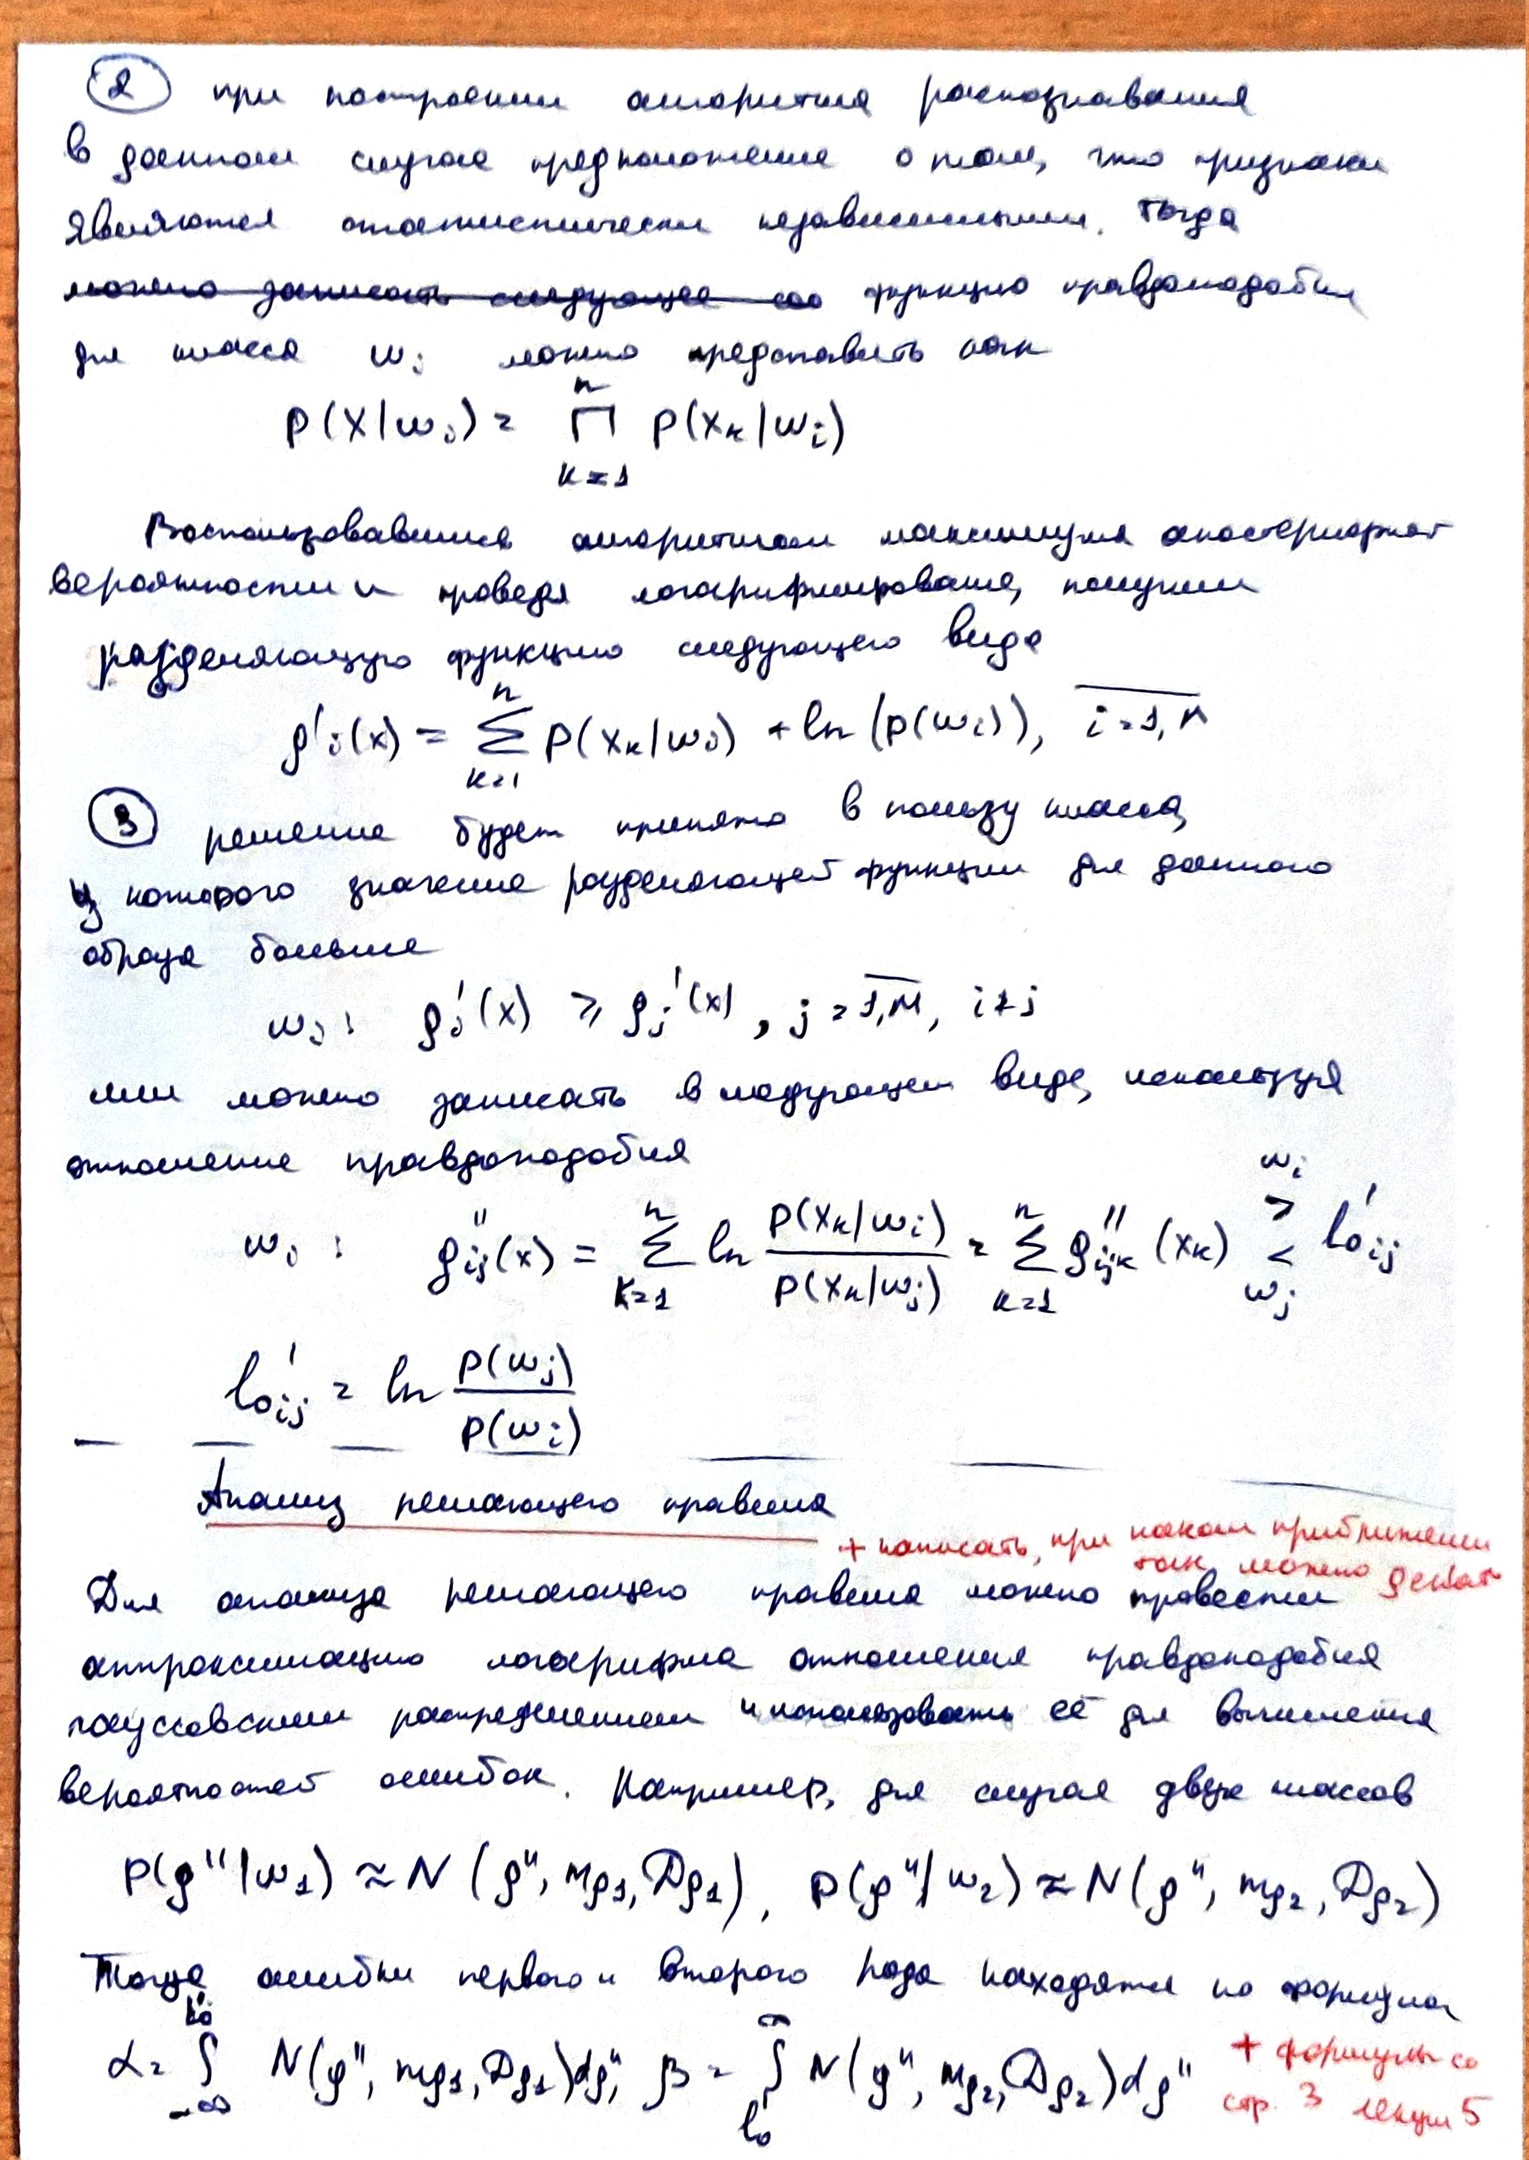 ② при построении алгоритма распознавания
в данном случае предположение о том, что признаки
являются статистически независимыми. Тогда
можно записать следующее соо функцию правдоподобия
для класса wi можно представить как
p(X|wi) = ∏ p(xk|wi)
n
k=1
Воспользовавшись алгоритмом максимума апостериорной
вероятности и проведя логарифмирование, получим
разделяющую функцию следующего вида
g'i(x) = ∑ⁿk=1 p(xk|wi) + ln(p(wi)), i=1,M
③ решение будет принято в пользу класса,
у которого значение разделяющей функции для данного
образа больше
wi: gi'(x) ≥ gj'(x), j=1,M, i≠j
или можно записать в следующем виде, используя
отношение правдоподобия
wi: g''ij(x) = ∑ⁿk=1 ln p(xk|wi)/p(xk|wj) = ∑ⁿk=1 g''ijk(xk) wi > < wj l'0ij
l'0ij = ln p(wj)/p(wi)
Анализ решающего правила
+ написать, при каком приближении
так можно делать
Для анализа решающего правила можно провести
аппроксимацию логарифма отношения правдоподобия
гауссовским распределением и использовать её для вычисления
вероятностей ошибок. Например, для случая двух классов
p(g''|w1) ≈ N(g'', mg1, Dg1), p(g''|w2) ≈ N(g'', mg2, Dg2)
Тогда ошибки первого и второго рода находятся по формулам
α = ∫ l'0 -∞ N(g'', mg1, Dg1)dg'', β = ∫ ∞ l'0 N(g'', mg2, Dg2)dg''
+ формулы со
стр. 3 лекции 5